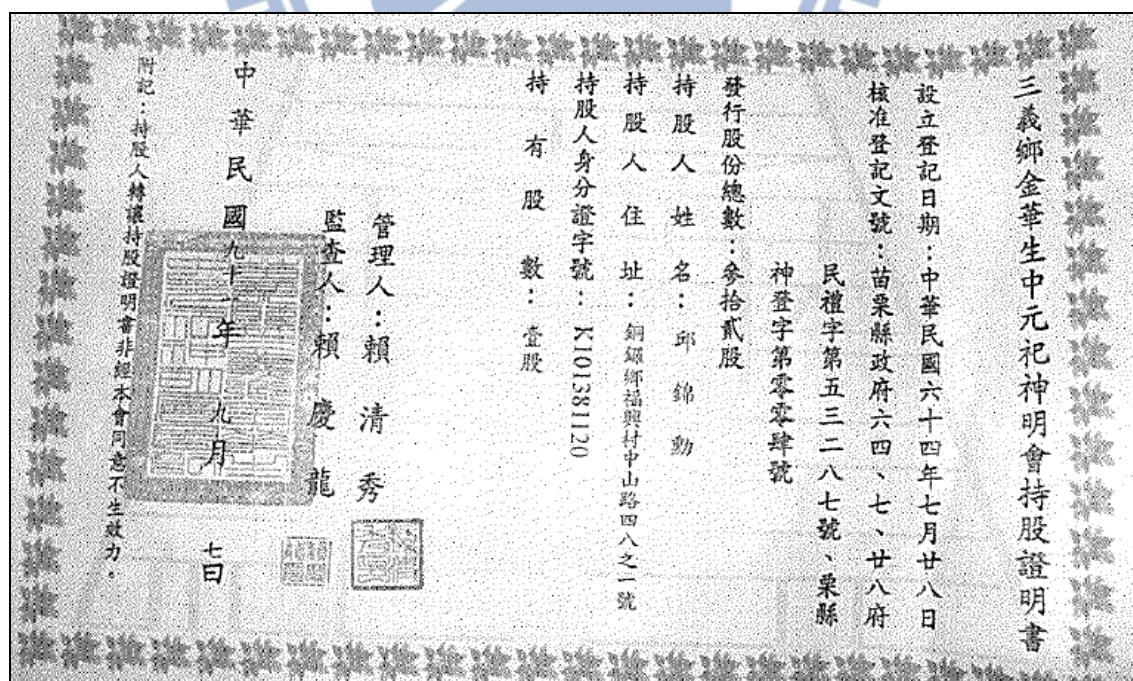 三義鄉金華生中元祀神明會持股證明書
設立登記日期：中華民國六十四年七月廿八日
核准登記文號：苗栗縣政府六四、七、廿八府
民禮字第五三二八七號、栗縣
神登字第零零肆號
發行股份總數：參拾貳股
持股人姓名：邱錦勳
持股人住址：銅鑼鄉福興村中山路四八之一號
持股人身分證字號：K101381120
持有股數：壹股
管理人：賴清秀
監查人：賴慶龍
中華民國九十一年九月七日
附記：持股人轉讓持股證明書非經本會同意不生效力。